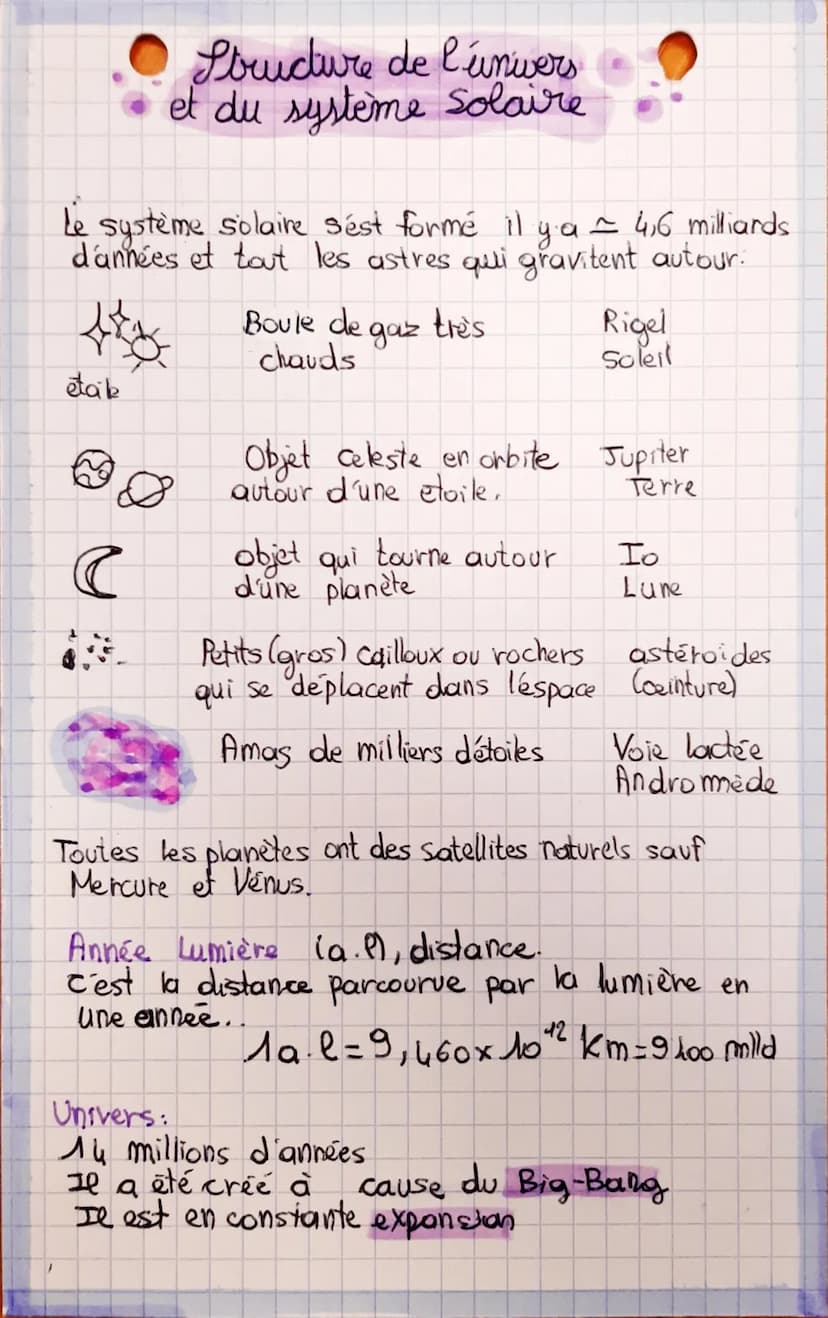 Structure de l'univers
et du système solaire
Le système solaire s'est formé il y a ≃ 4,6 milliards
d'années et tout les astres qui gravitent autour.
Boule de gaz très
chauds
Rigel
Soleil
étoile
Objet celeste en orbite
autour d'une etoile.
Jupiter
Terre
objet qui tourne autour
d'une planète
Io
Lune
Petits (gros) cailloux ou rochers
qui se déplacent dans l'espace
astéroïdes
(ceinture)
Amas de milliers d'étoiles
Voie lactée
Andromède
Toutes les planètes ont des satellites naturels sauf
Mercure et Vénus.
Année Lumière (a.l), distance.
c'est la distance parcourue par la lumière en
une année..
1a.l=9,460x10¹² km=9400 mlld
Univers:
14 millions d'années
Il a été créé à cause du Big-Bang
Il est en constante expansion